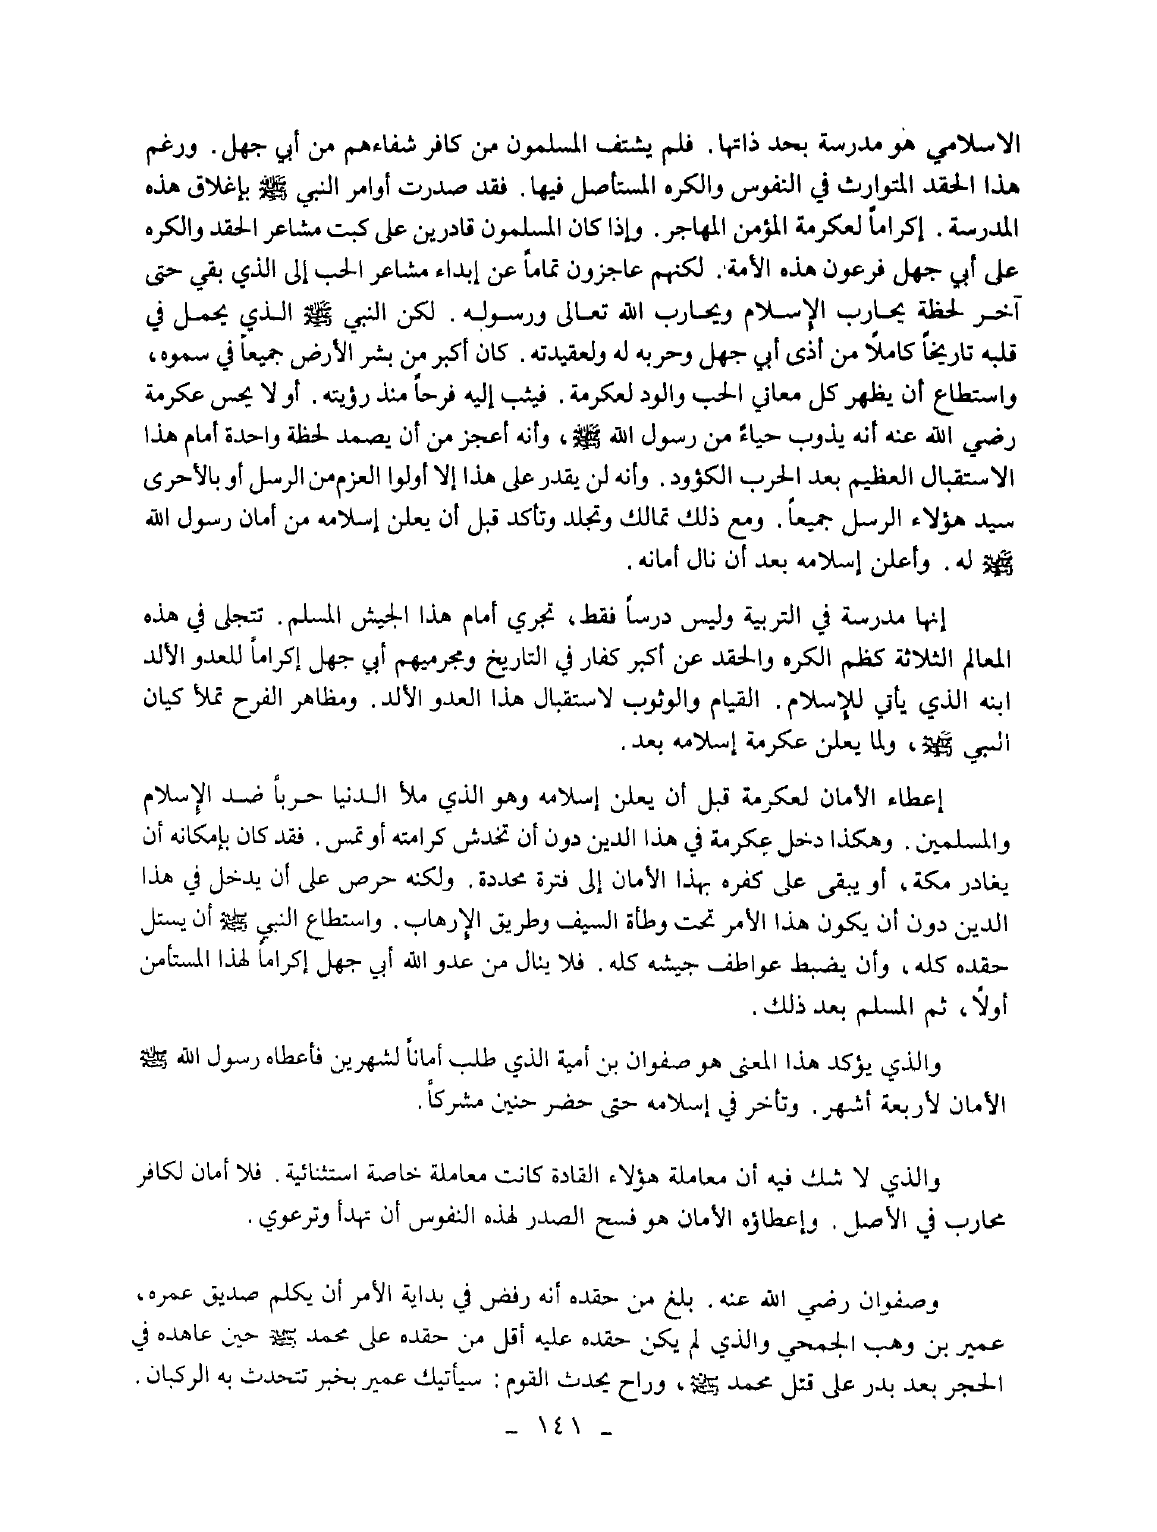 الاسلامي هو مدرسة بحد ذاتها. فلم يشتف المسلمون من كافر شفاءهم من أبي جهل. ورغم
هذا الحقد المتوارث في النفوس والكره المستأصل فيها. فقد صدرت أوامر النبي ﷺ بإغلاق هذه
المدرسة. إكراماً لعكرمة المؤمن المهاجر. وإذا كان المسلمون قادرين على كبت مشاعر الحقد والكره
على أبي جهل فرعون هذه الأمة. لكنهم عاجزون تماماً عن إبداء مشاعر الحب إلى الذي بقي حتى
آخر لحظة يحارب الإسلام ويحارب الله تعالى ورسوله. لكن النبي ﷺ الذي يحمل في
قلبه تاريخاً كاملاً من أذى أبي جهل وحربه له ولعقيدته. كان أكبر من بشر الأرض جميعاً في سموه،
واستطاع أن يظهر كل معاني الحب والود لعكرمة. فيثب إليه فرحاً منذ رؤيته. أو لا يحس عكرمة
رضي الله عنه أنه يذوب حياءً من رسول الله ﷺ، وأنه أعجز من أن يصمد لحظة واحدة أمام هذا
الاستقبال العظيم بعد الحرب الكؤود. وأنه لن يقدر على هذا إلا أولوا العزم من الرسل أو بالأحرى
سيد هؤلاء الرسل جميعاً. ومع ذلك تمالك وتجلد وتأكد قبل أن يعلن إسلامه من أمان رسول الله
ﷺ له. وأعلن إسلامه بعد أن نال أمانه.
إنها مدرسة في التربية وليس درساً فقط، تجري أمام هذا الجيش المسلم. تتجلى في هذه
المعالم الثلاثة كظم الكره والحقد عن أكبر كفار في التاريخ ومجرميهم أبي جهل إكراماً للعدو الألد
ابنه الذي يأتي للإسلام. القيام والوثوب لاستقبال هذا العدو الألد. ومظاهر الفرح تملأ كيان
النبي ﷺ، ولما يعلن عكرمة إسلامه بعد.
إعطاء الأمان لعكرمة قبل أن يعلن إسلامه وهو الذي ملأ الدنيا حرباً ضد الإسلام
والمسلمين. وهكذا دخل عكرمة في هذا الدين دون أن تخدش كرامته أو تمس. فقد كان بإمكانه أن
يغادر مكة، أو يبقى على كفره بهذا الأمان إلى فترة محددة. ولكنه حرص على أن يدخل في هذا
الدين دون أن يكون هذا الأمر تحت وطأة السيف وطريق الإرهاب. واستطاع النبي ﷺ أن يستل
حقده كله، وأن يضبط عواطف جيشه كله. فلا ينال من عدو الله أبي جهل إكراماً لهذا المستأمن
أولاً، ثم المسلم بعد ذلك.
والذي يؤكد هذا المعنى هو صفوان بن أمية الذي طلب أماناً لشهرين فأعطاه رسول الله ﷺ
الأمان لأربعة أشهر. وتأخر في إسلامه حتى حضر حنين مشركاً.
والذي لا شك فيه أن معاملة هؤلاء القادة كانت معاملة خاصة استثنائية. فلا أمان لكافر
محارب في الأصل. وإعطاؤه الأمان هو فسح الصدر لهذه النفوس أن تهدأ وترعوي.
وصفوان رضي الله عنه. بلغ من حقده أنه رفض في بداية الأمر أن يكلم صديق عمره،
عمير بن وهب الجمحي والذي لم يكن حقده عليه أقل من حقده على محمد ﷺ حين عاهده في
الحجر بعد بدر على قتل محمد ﷺ، وراح يحدث القوم: سيأتيك عمير بخبر تتحدث به الركبان.
- ١٤١ -